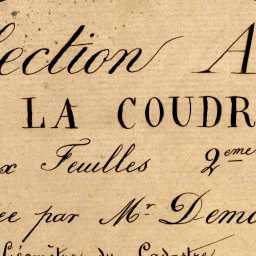 ection A
LA COUDR
x Feuilles 2eme
ée par Mr Dem
Géomètre du Cadastre